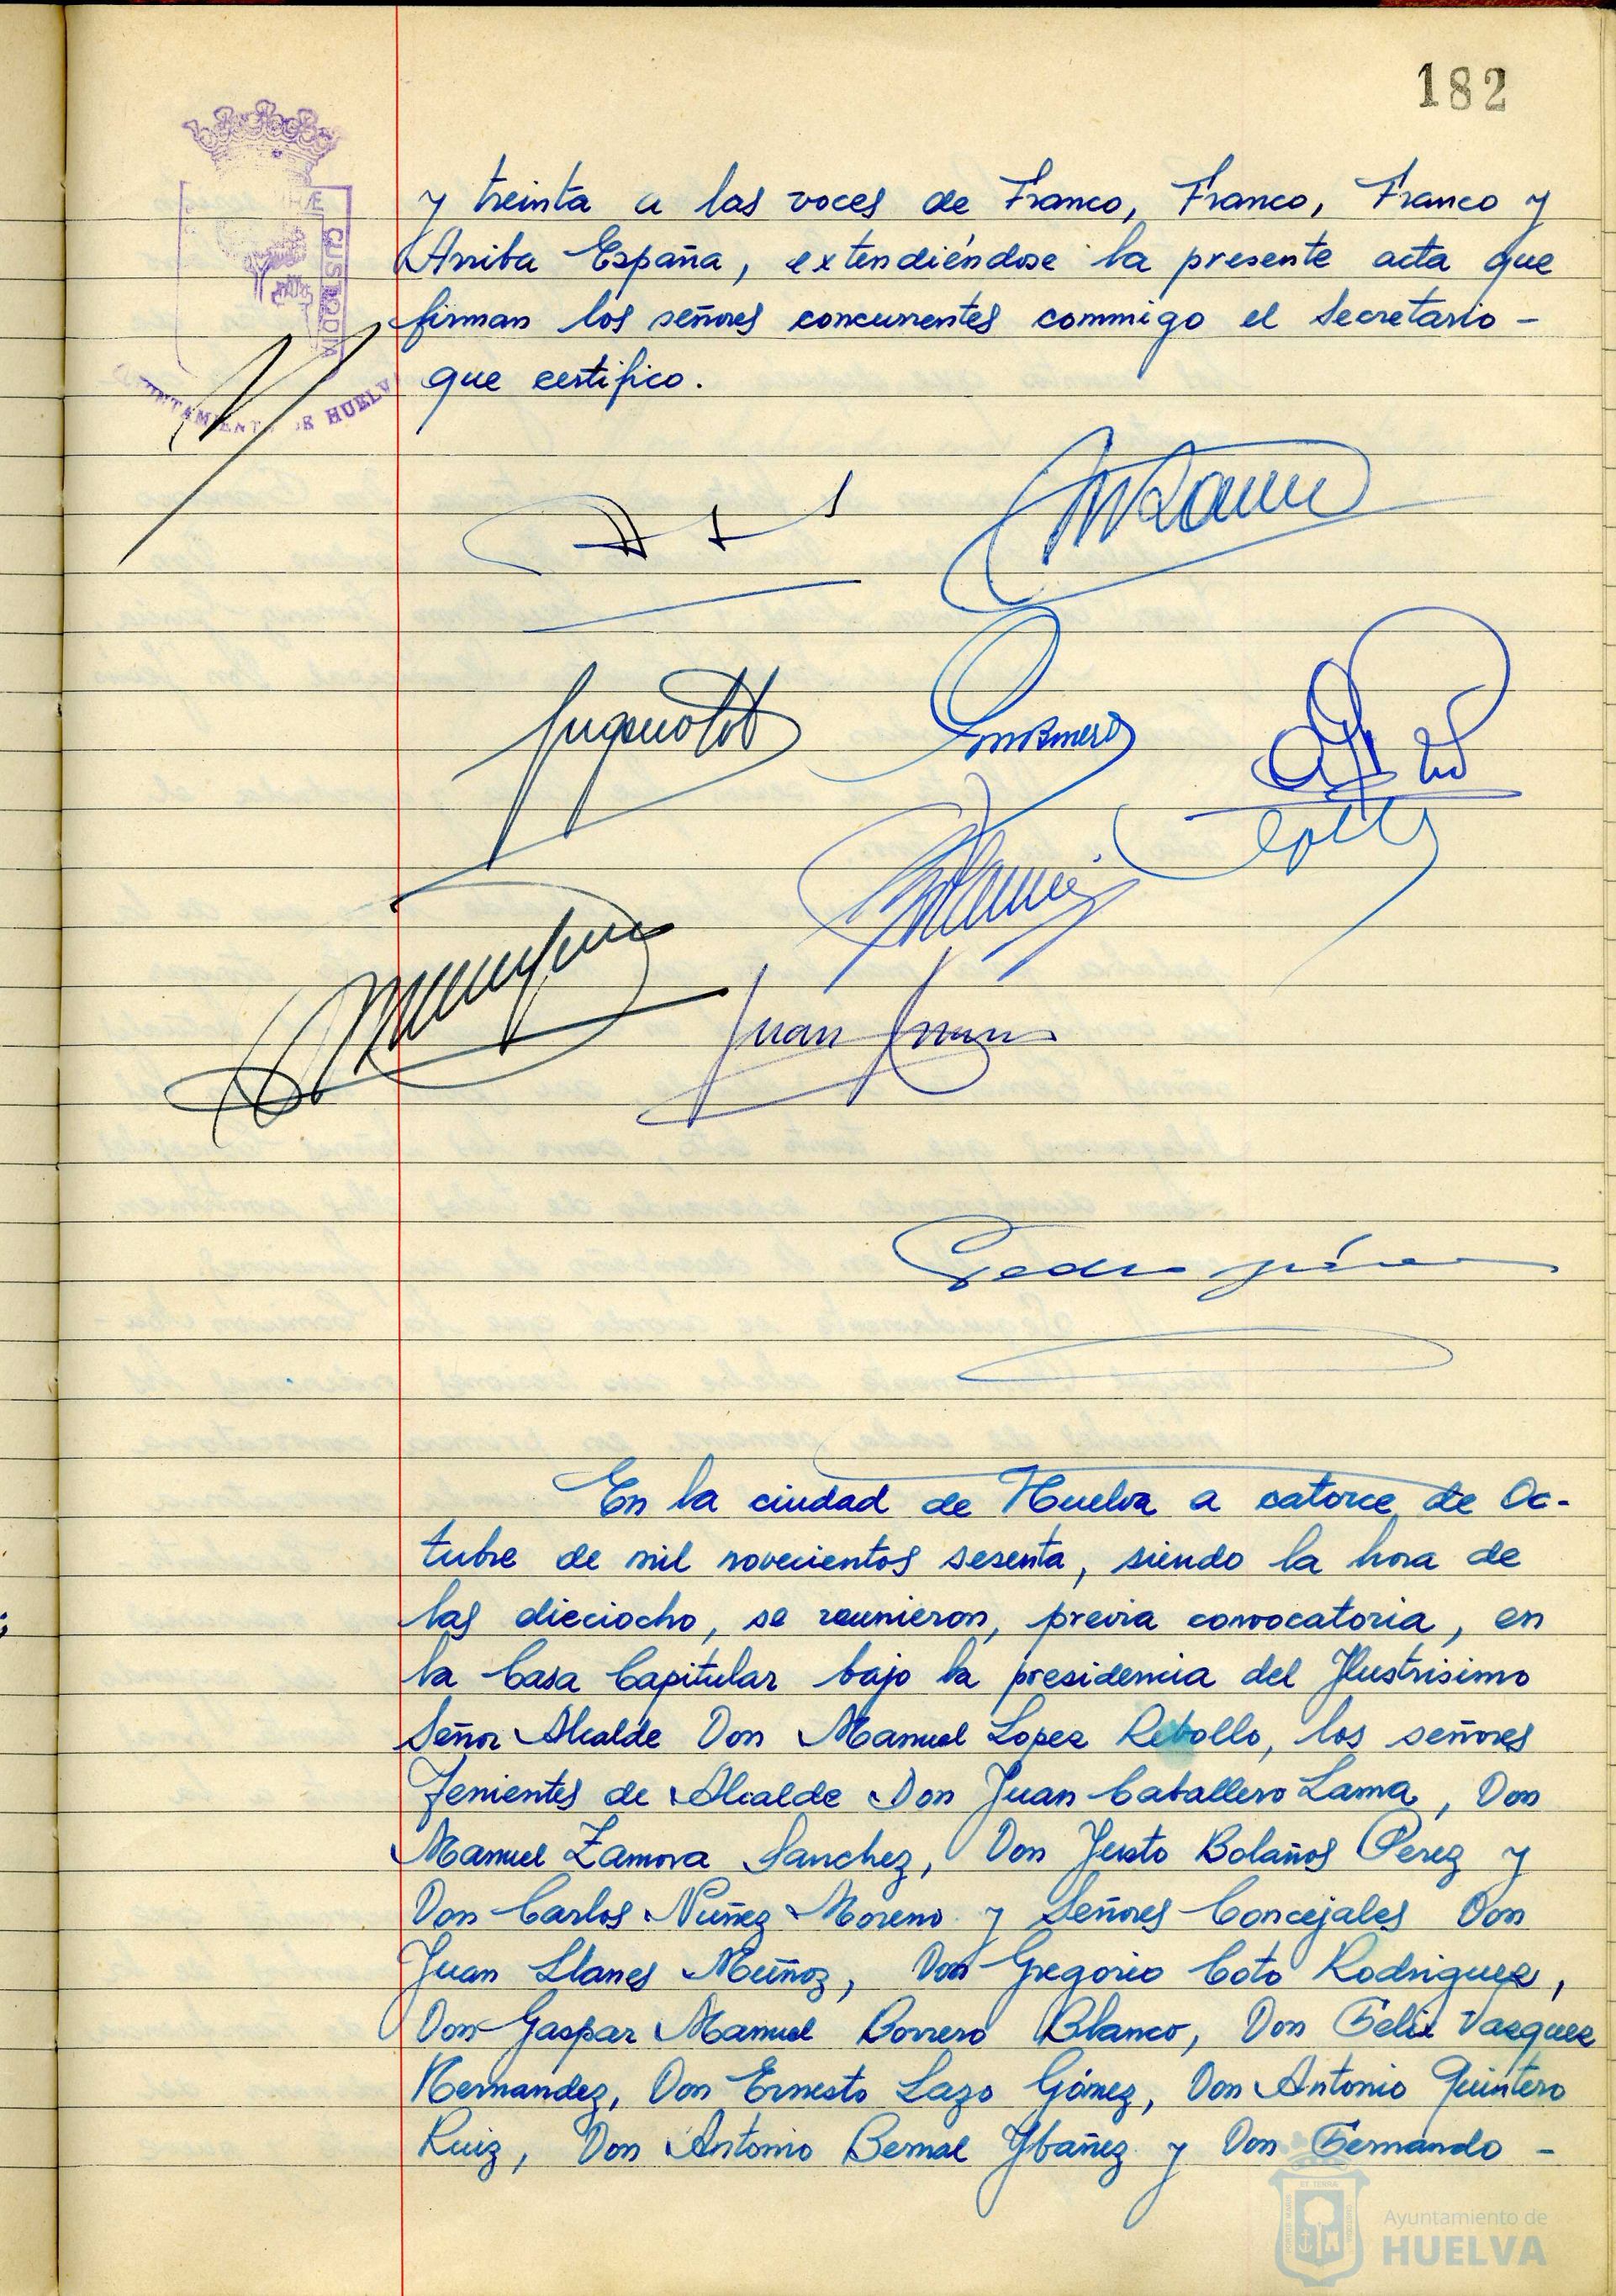 182
y treinta a las voces de Franco, Franco, Franco y
Arriba España, extendiéndose la presente acta que
firman los señores concurrentes conmigo el Secretario -
que certifico.
CUSTODIA
AYUNTAMIENTO DE HUELVA
Juan
Pedro
En la ciudad de Huelva a catorce de Oc-
tubre de mil novecientos sesenta, siendo la hora de
las dieciocho, se reunieron, previa convocatoria, en
la Casa Capitular bajo la presidencia del Ilustrisimo
Señor Alcalde Don Manuel Lopez Rebollo, los señores
Tenientes de Alcalde Don Juan Caballero Lama, Don
Manuel Zamora Sanchez, Don Justo Bolaños Perez y
Don Carlos Nuñez Moreno y Señores Concejales Don
Juan Llanes Muñoz, Don Gregorio Coto Rodriguez,
Don Gaspar Manuel Borrero Blanco, Don Felix Vazquez
Hernandez, Don Ernesto Lazo Gómez, Don Antonio Quintero
Ruiz, Don Antonio Bernal Ybañez y Don Fernando -
Ayuntamiento de
HUELVA